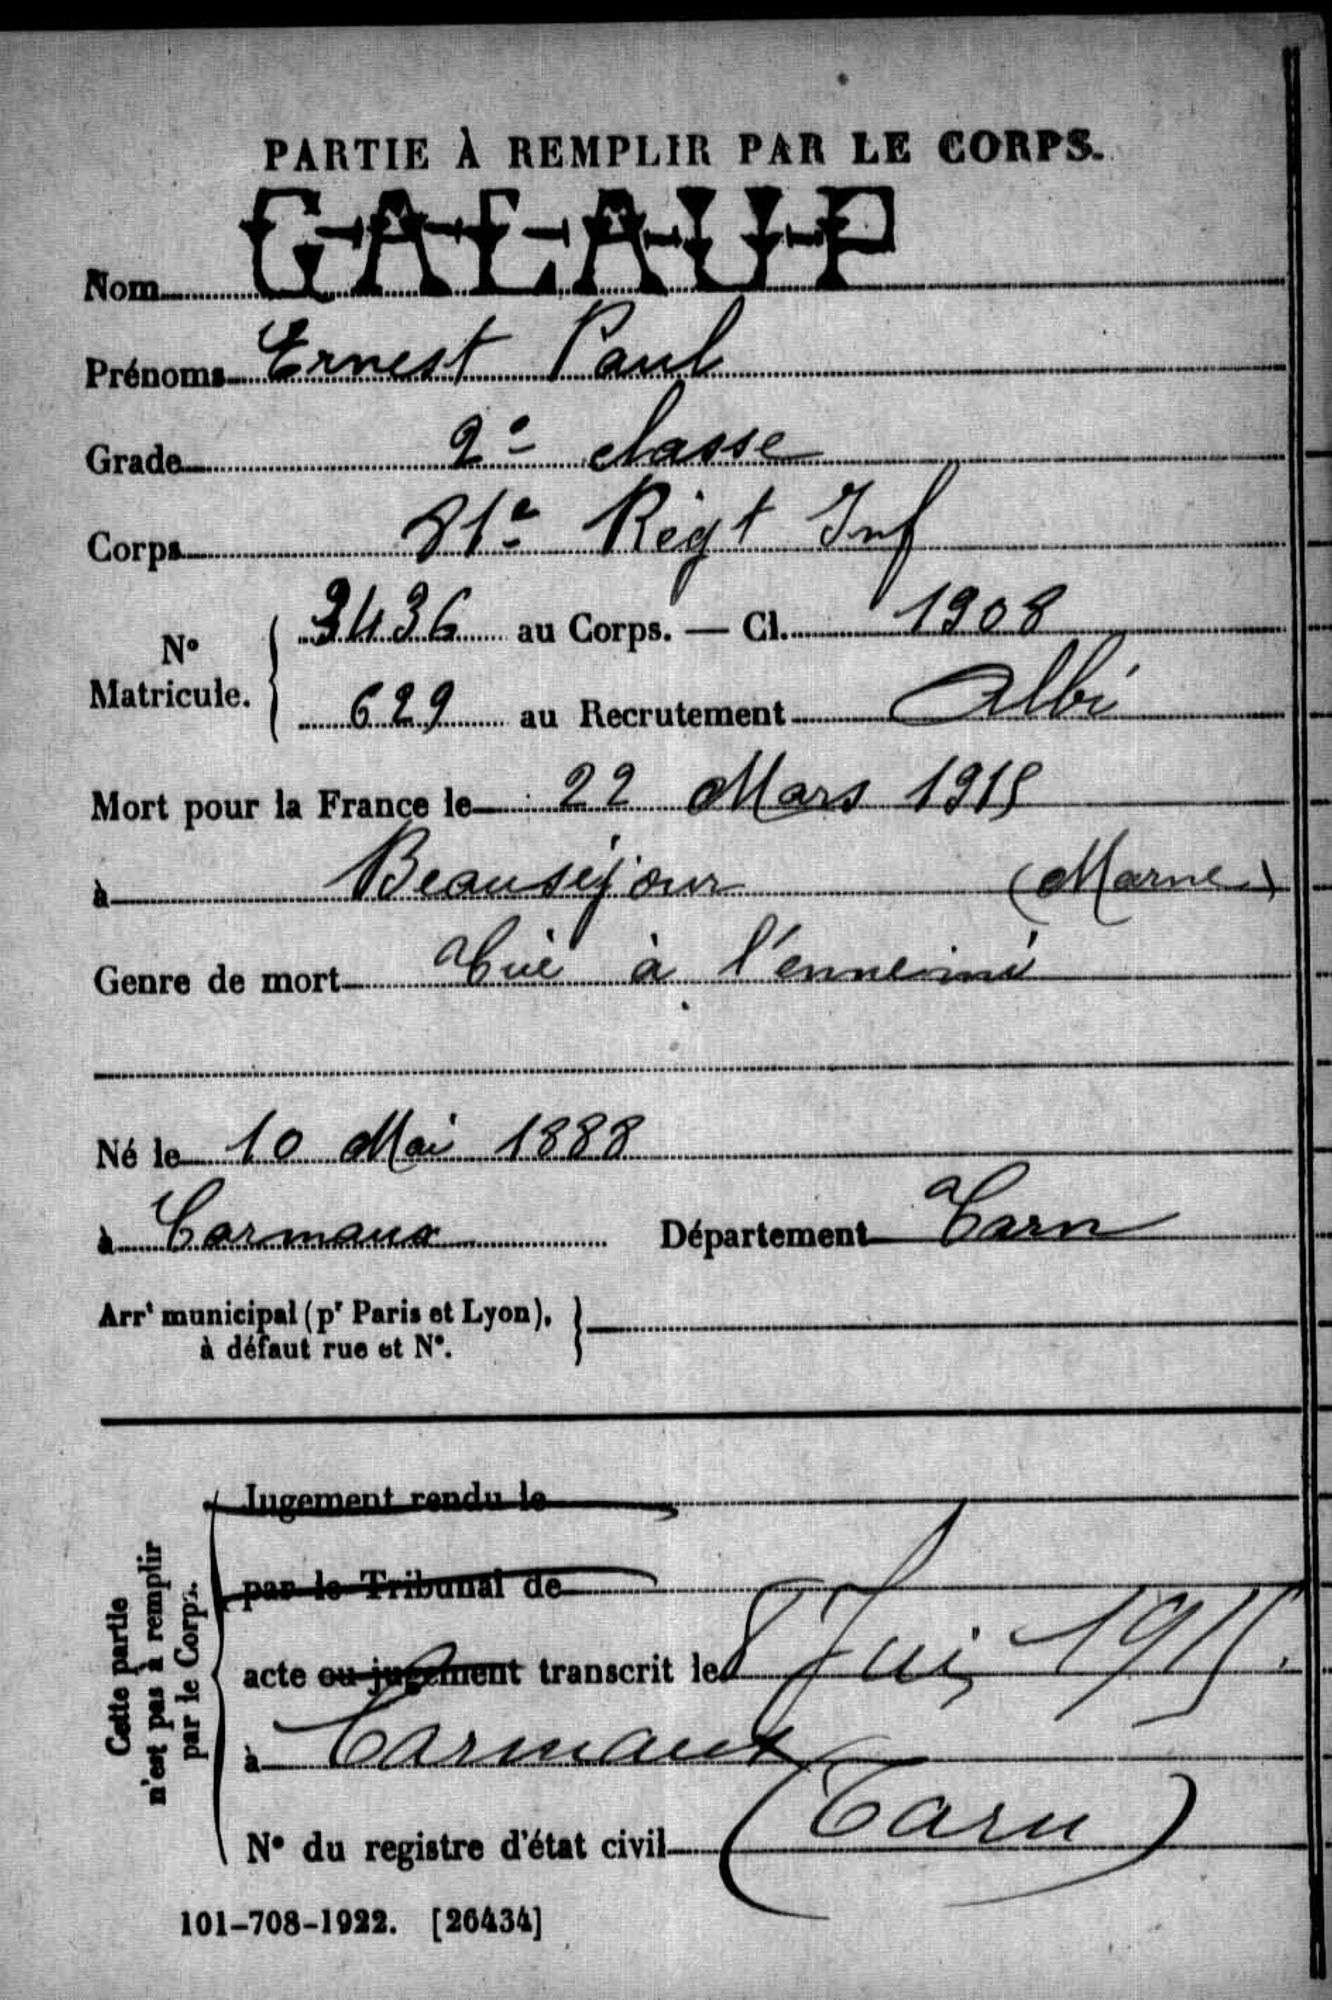 PARTIE À REMPLIR PAR LE CORPS.
Nom GALAUP
Prénoms Ernest Paul
Grade 2e classe
Corps 81e Régt Inf
N° Matricule. 3436 au Corps. — Cl. 1908
629 au Recrutement Albi
Mort pour la France le 22 Mars 1915
à Beauséjour (Marne)
Genre de mort Tué à l'ennemi
Né le 10 Mai 1888
à Carmaux Département Tarn
Arrt municipal (pr Paris et Lyon),
à défaut rue et N°.
Cette partie
n'est pas à remplir
par le Corps.
Jugement rendu le
par le Tribunal de
acte ou jugement transcrit le 8 Jui 1915.
à Carmaux
(Tarn)
N° du registre d'état civil
101-708-1922. [26434]